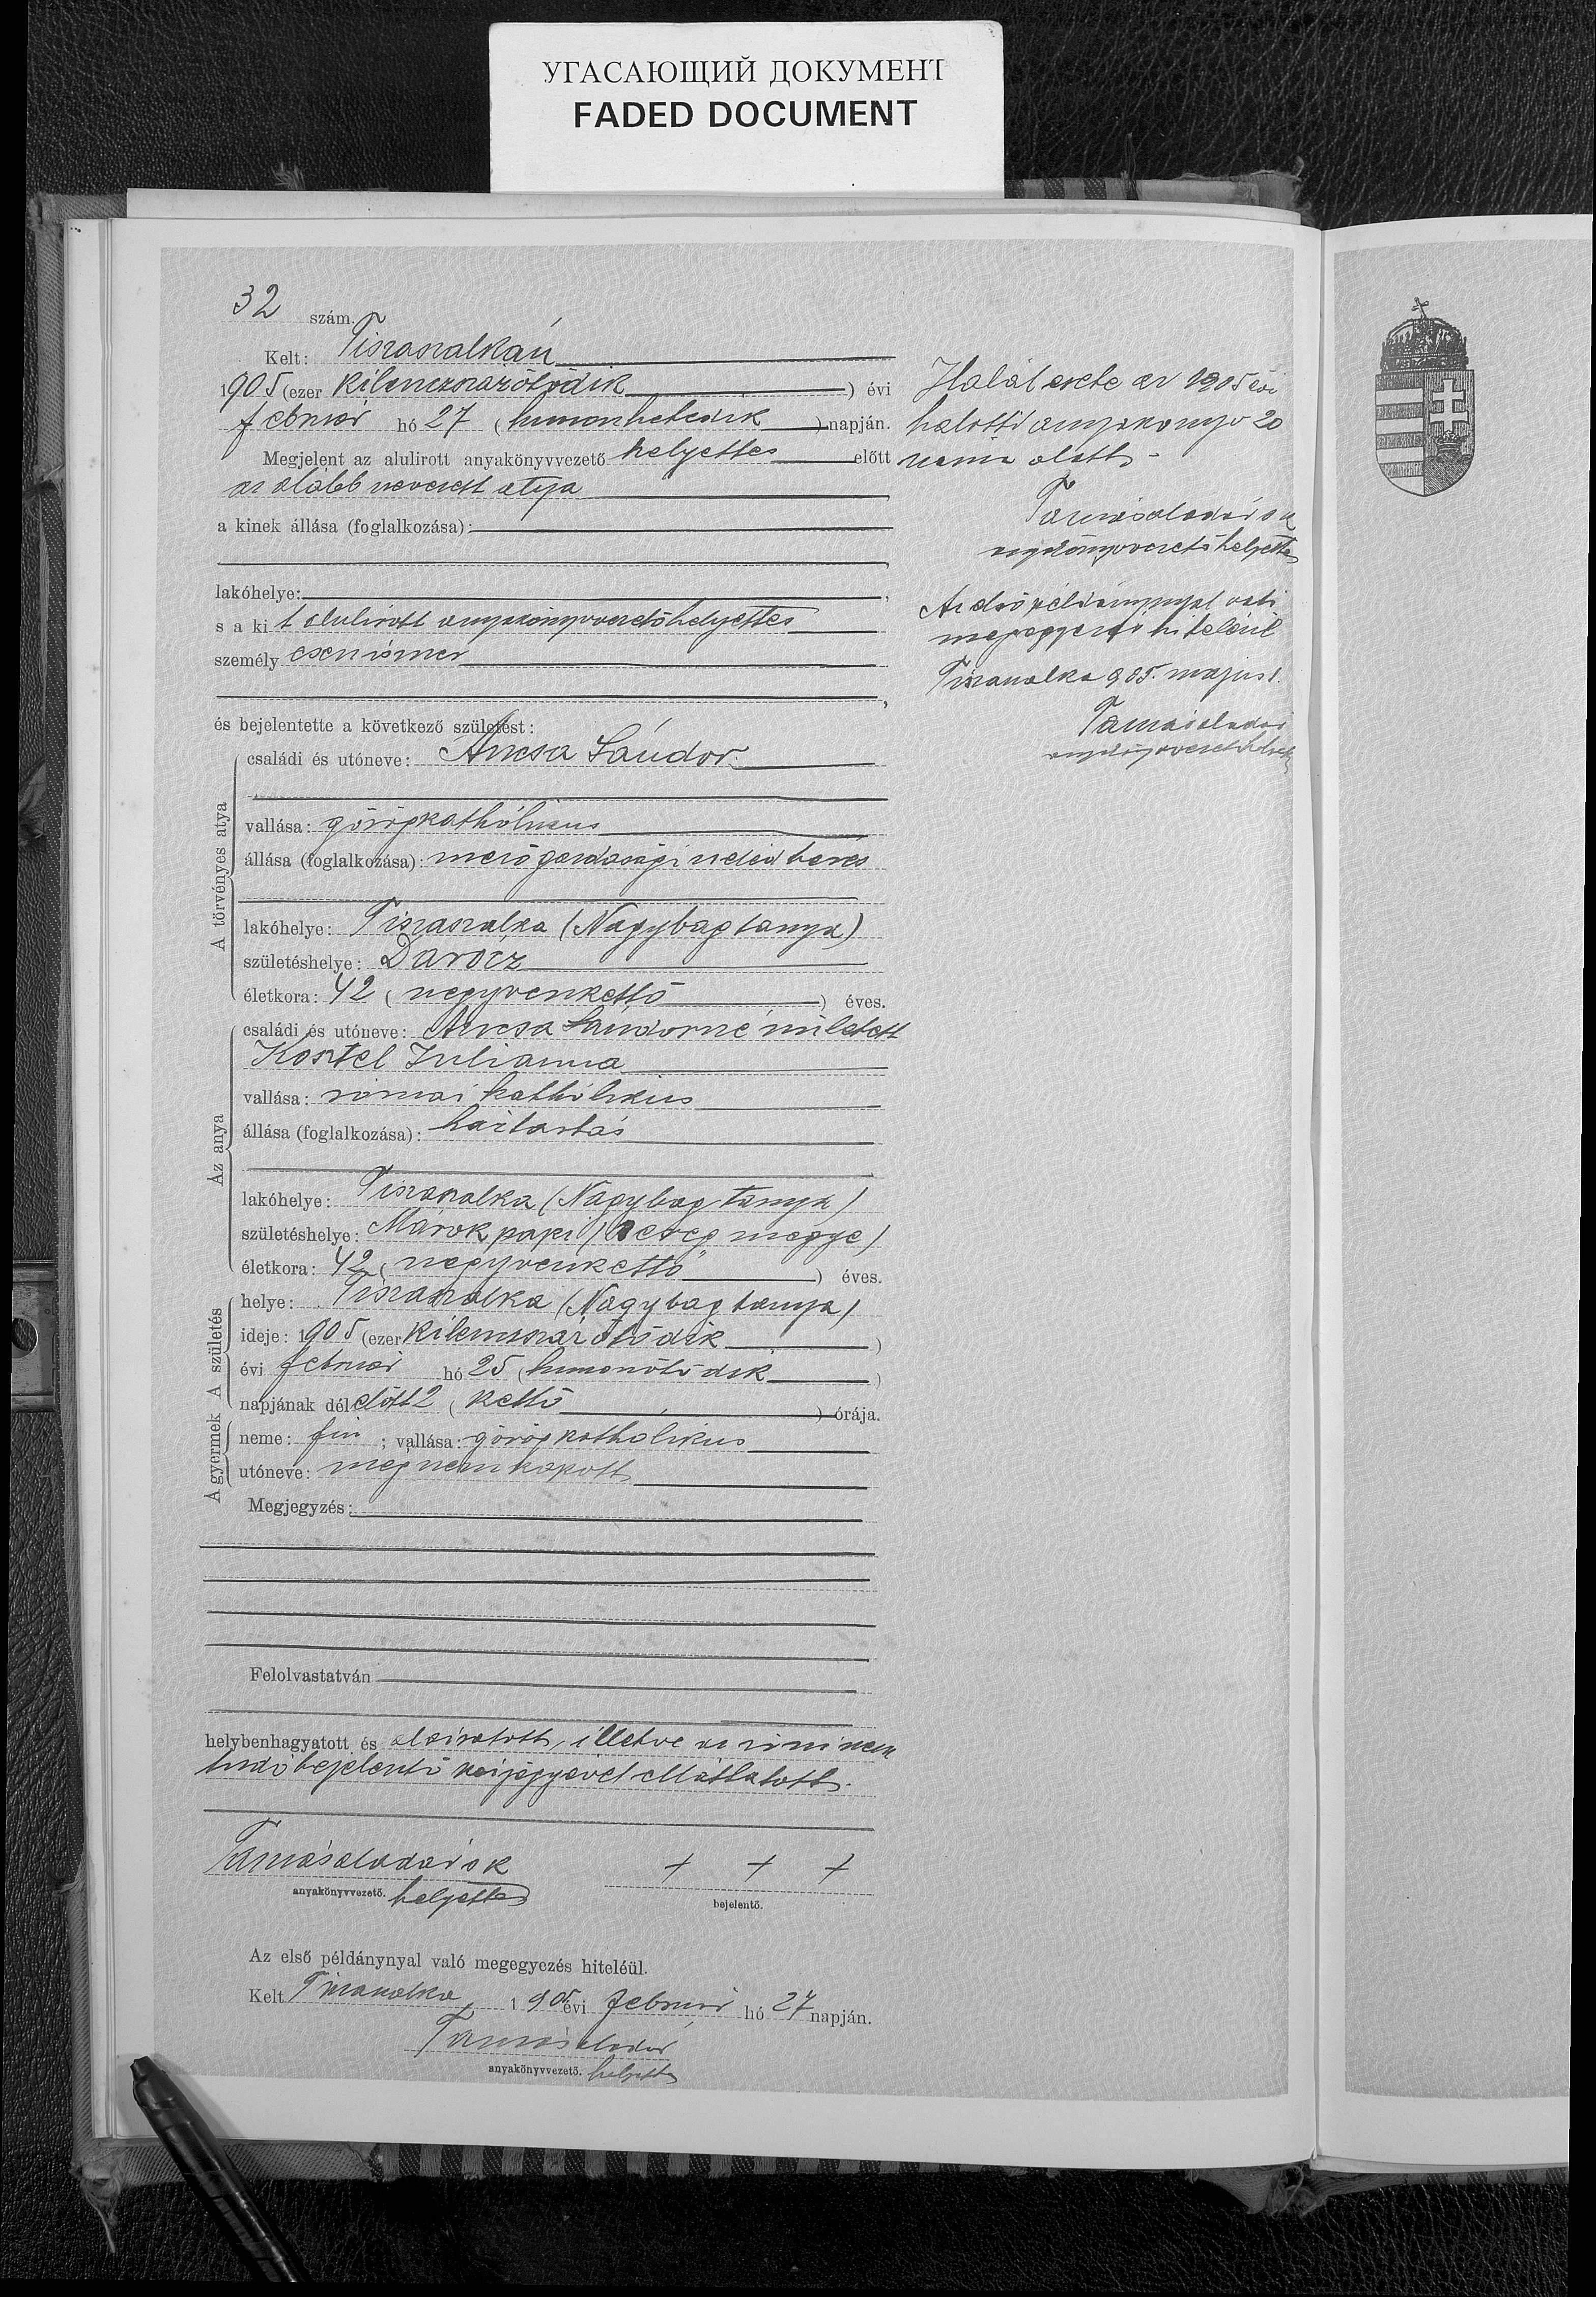 УГАСАЮЩИЙ ДОКУМЕНТ
FADED DOCUMENT
32 szám.
Kelt: Tiszaszalkán
1905 (ezer kilenczszázötödik) évi
február hó 27 (huszonhetedik) napján.
Megjelent az alulirott anyakönyvvezető helyettes előtt
az alább nevezett atya
a kinek állása (foglalkozása):
lakóhelye:
s a kit alulirott anyakönyvvezetőhelyettes
személyesen ismer
és bejelentette a következő születést:
A törvényes atya
családi és utóneve: Ancsa Sándor.
vallása: görögkathólikus
állása (foglalkozása): mezőgazdasági béres
lakóhelye: Tiszaszalka (Nagybagtanya)
születéshelye: Darócz
életkora: 42 (negyvenkettő) éves.
Az anya
családi és utóneve: Ancsa Sándorné született
Kosztel Julianna
vallása: római katholikus
állása (foglalkozása): háztartás
lakóhelye: Tiszaszalka (Nagybag tanya)
születéshelye: Márokpapi (Bereg megye)
életkora: 42 (negyvenkettő) éves.
A születés
helye: Tiszaszalka (Nagybag tanya)
ideje: 1905 (ezer kilenczszáz ötödik)
évi február hó 25 (huszonötödik)
napjának délelőtt 2 (kettő) órája.
A gyermek
neme: fiú; vallása: görög katholikus
utóneve: még nem kapott
Megjegyzés:
Felolvastatván
helybenhagyatott és aláiratott, illetve az irni nem
tudó bejelentő kézjegyével elláttatott.
Tamás Aladár s k
anyakönyvvezető. helyettes
+ + +
bejelentő.
Az első példánynyal való megegyezés hiteléül.
Kelt Tiszaszalka, 1905 évi február hó 27 napján.
Tamás Aladár
anyakönyvvezető. helyettes
Halál esete az 1905 évi
halotti anyakönyv 20
szám alatt.
Tamás Aladár s k
anyakönyvvezetőhelyettes
Az első példánynyal való
megegyezés hiteléül
Tiszaszalka 905. május 1.
Tamás Aladár